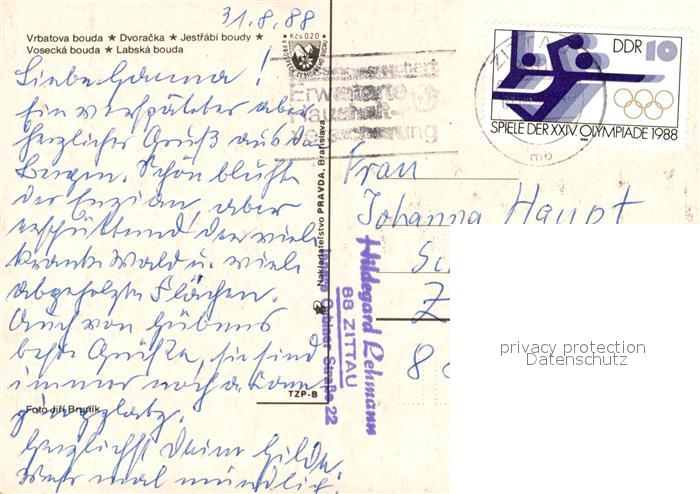 31.8.88
Vrbatova bouda ★ Dvoračka ★ Jestřábí boudy ★
Vosecká bouda ★ Labská bouda
Kčs 0,20
Liebe Hanna!
Ein verspäteter aber
herzlicher Gruß aus den
Bergen. Schön blühte
der Enzian, aber
erschütternd der viele
kranke Wald u. viele
abgeholzte Flächen.
Auch von Hübners
beste Grüße, sie sind
immer noch a. Cam-
pingplatz.
Herzlichst Deine Hilde.
Mehr mal mündlich.
Foto Jiří Bruník
TZP-B
Nakladatelství PRAVDA, Bratislava
Erweiterte
Haushalt-
versicherung
ZITTAU
DDR 10
SPIELE DER XXIV. OLYMPIADE 1988
Frau
Johanna Haupt
Z
8
Hildegard Lehmann
88 ZITTAU
Straße 22
privacy protection
Datenschutz